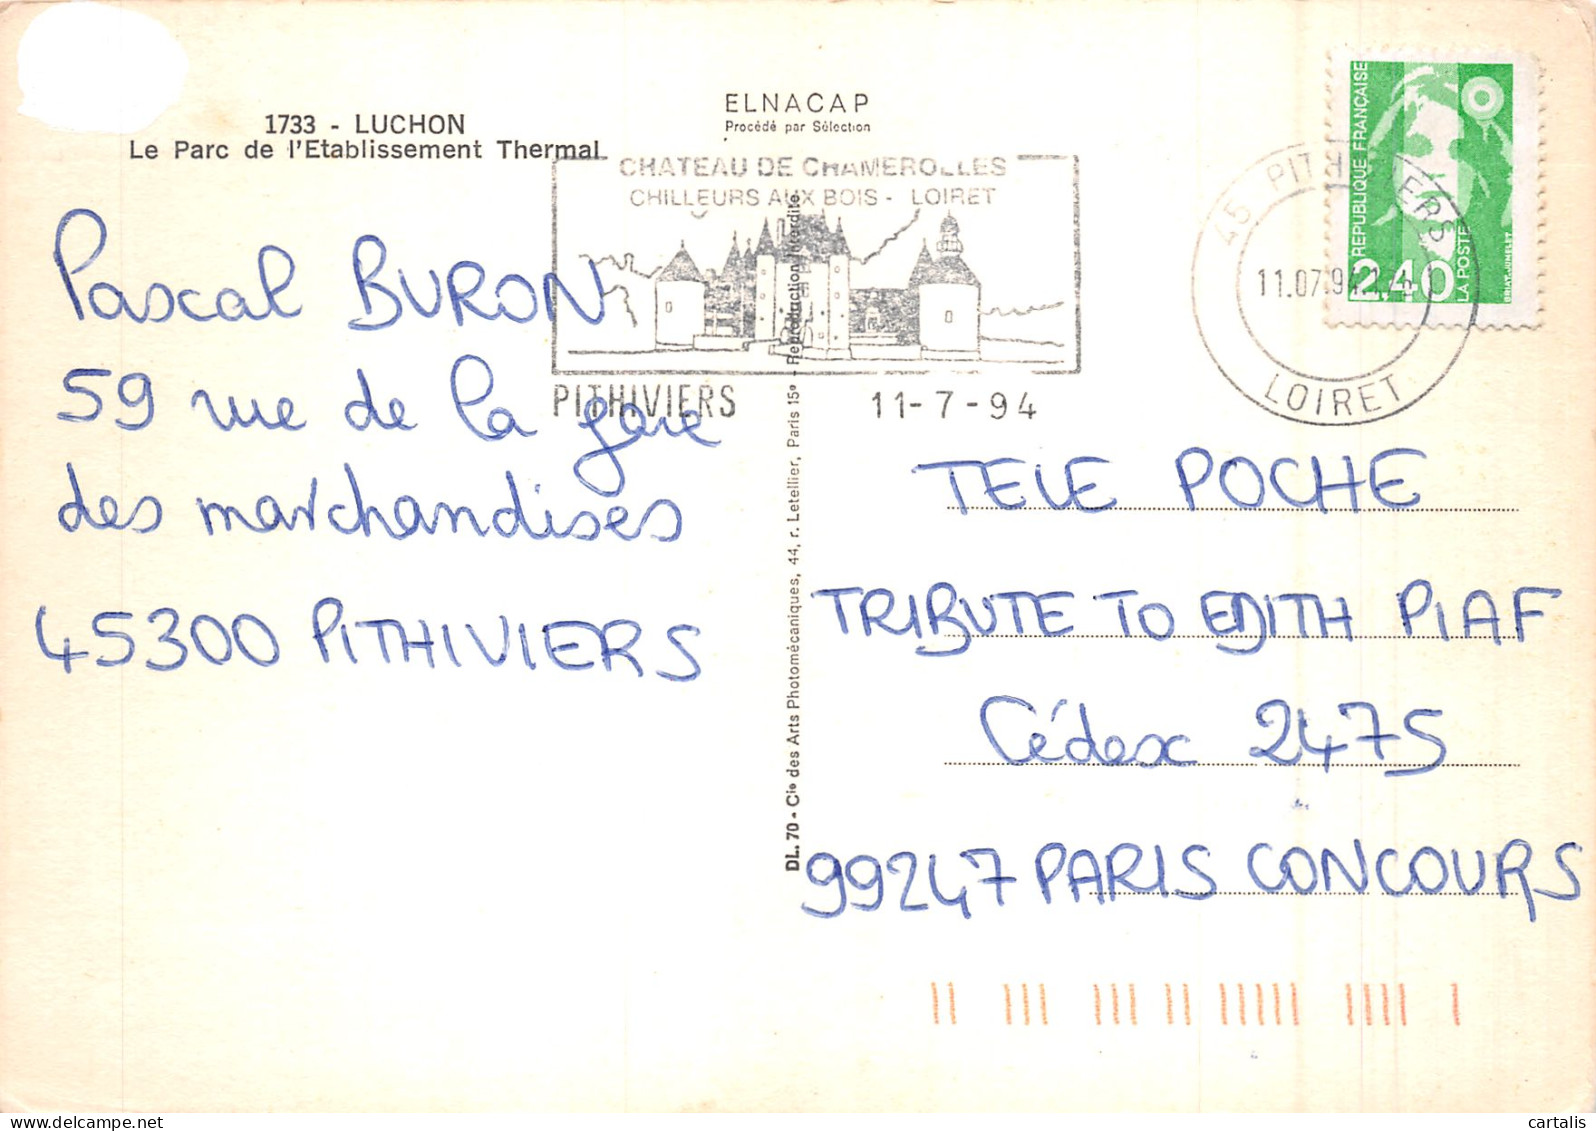 1733 - LUCHON
Le Parc de l'Etablissement Thermal
ELNACAP
Procédé par Sélection
CHATEAU DE CHAMEROLLES
CHILLEURS AUX BOIS - LOIRET
PITHIVIERS 11-7-94
45 PITHIVIERS
11.07.94
LOIRET
REPUBLIQUE FRANÇAISE
2,40
LA POSTE
BRIAT-JUMELET
Pascal BURON
59 rue de la gare
des marchandises
45300 PITHIVIERS
DL. 70 - Cie des Arts Photomécaniques, 44, r. Letellier, Paris 15e - Reproduction Interdite
TELE POCHE
TRIBUTE TO EDITH PIAF
Cédex 2475
99247 PARIS CONCOURS
cartalis
www.delcampe.net